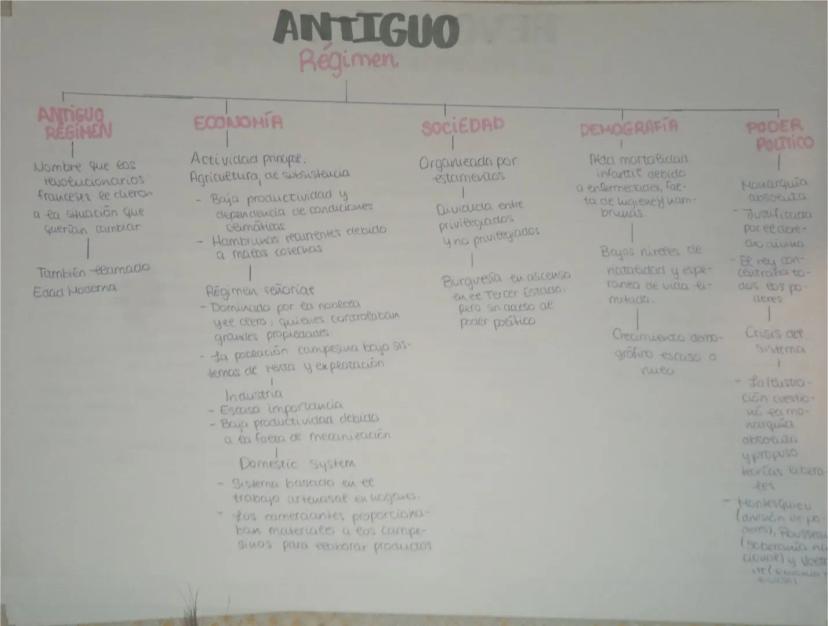 ANTIGUO
Régimen
ANTIGUO
RÉGIMEN
Nombre que los
revolucionarios
franceses le dieron
a la situación que
querían cambiar
También llamado
Edad Moderna
ECONOMÍA
Actividad principal.
Agricultura, de subsistencia
- Baja productividad y
dependencia de condiciones
climáticas
- Hambrunas recurrentes debido
a malas cosechas
Régimen señorial
- Dominado por la nobleza
y el clero, quienes controlaban
grandes propiedades.
- La población campesina bajo sis-
temas de renta y explotación
Industria
- Escasa importancia
- Baja productividad debido
a la falta de mecanización
Domestic System
- Sistema basado en el
trabajo artesanal en hogares.
- Los comerciantes proporciona-
ban materiales a los campe-
sinos para elaborar productos
SOCIEDAD
Organizada por
estamentos
Dividida entre
privilegiados
y no privilegiados
Burguesía en ascenso
en el Tercer Estado,
pero sin acceso al
poder político
DEMOGRAFÍA
Alta mortalidad
infantil debido
a enfermedades, fal-
ta de higiene y ham-
brunas
Bajos niveles de
natalidad y espe-
ranza de vida li-
mitada.
Crecimiento demo-
gráfico escaso o
nulo
PODER
POLÍTICO
Monarquía
absoluta
- Justificada
por el dere-
cho divino
- El rey con-
centraba to-
dos los po-
deres
Crisis del
sistema
- La Ilustra-
ción cuestio-
nó la mo-
narquía
absoluta
y propuso
teorías libera-
les
- Montesquieu
(división de po-
deres), Rousseau
(soberanía na-
cional) y